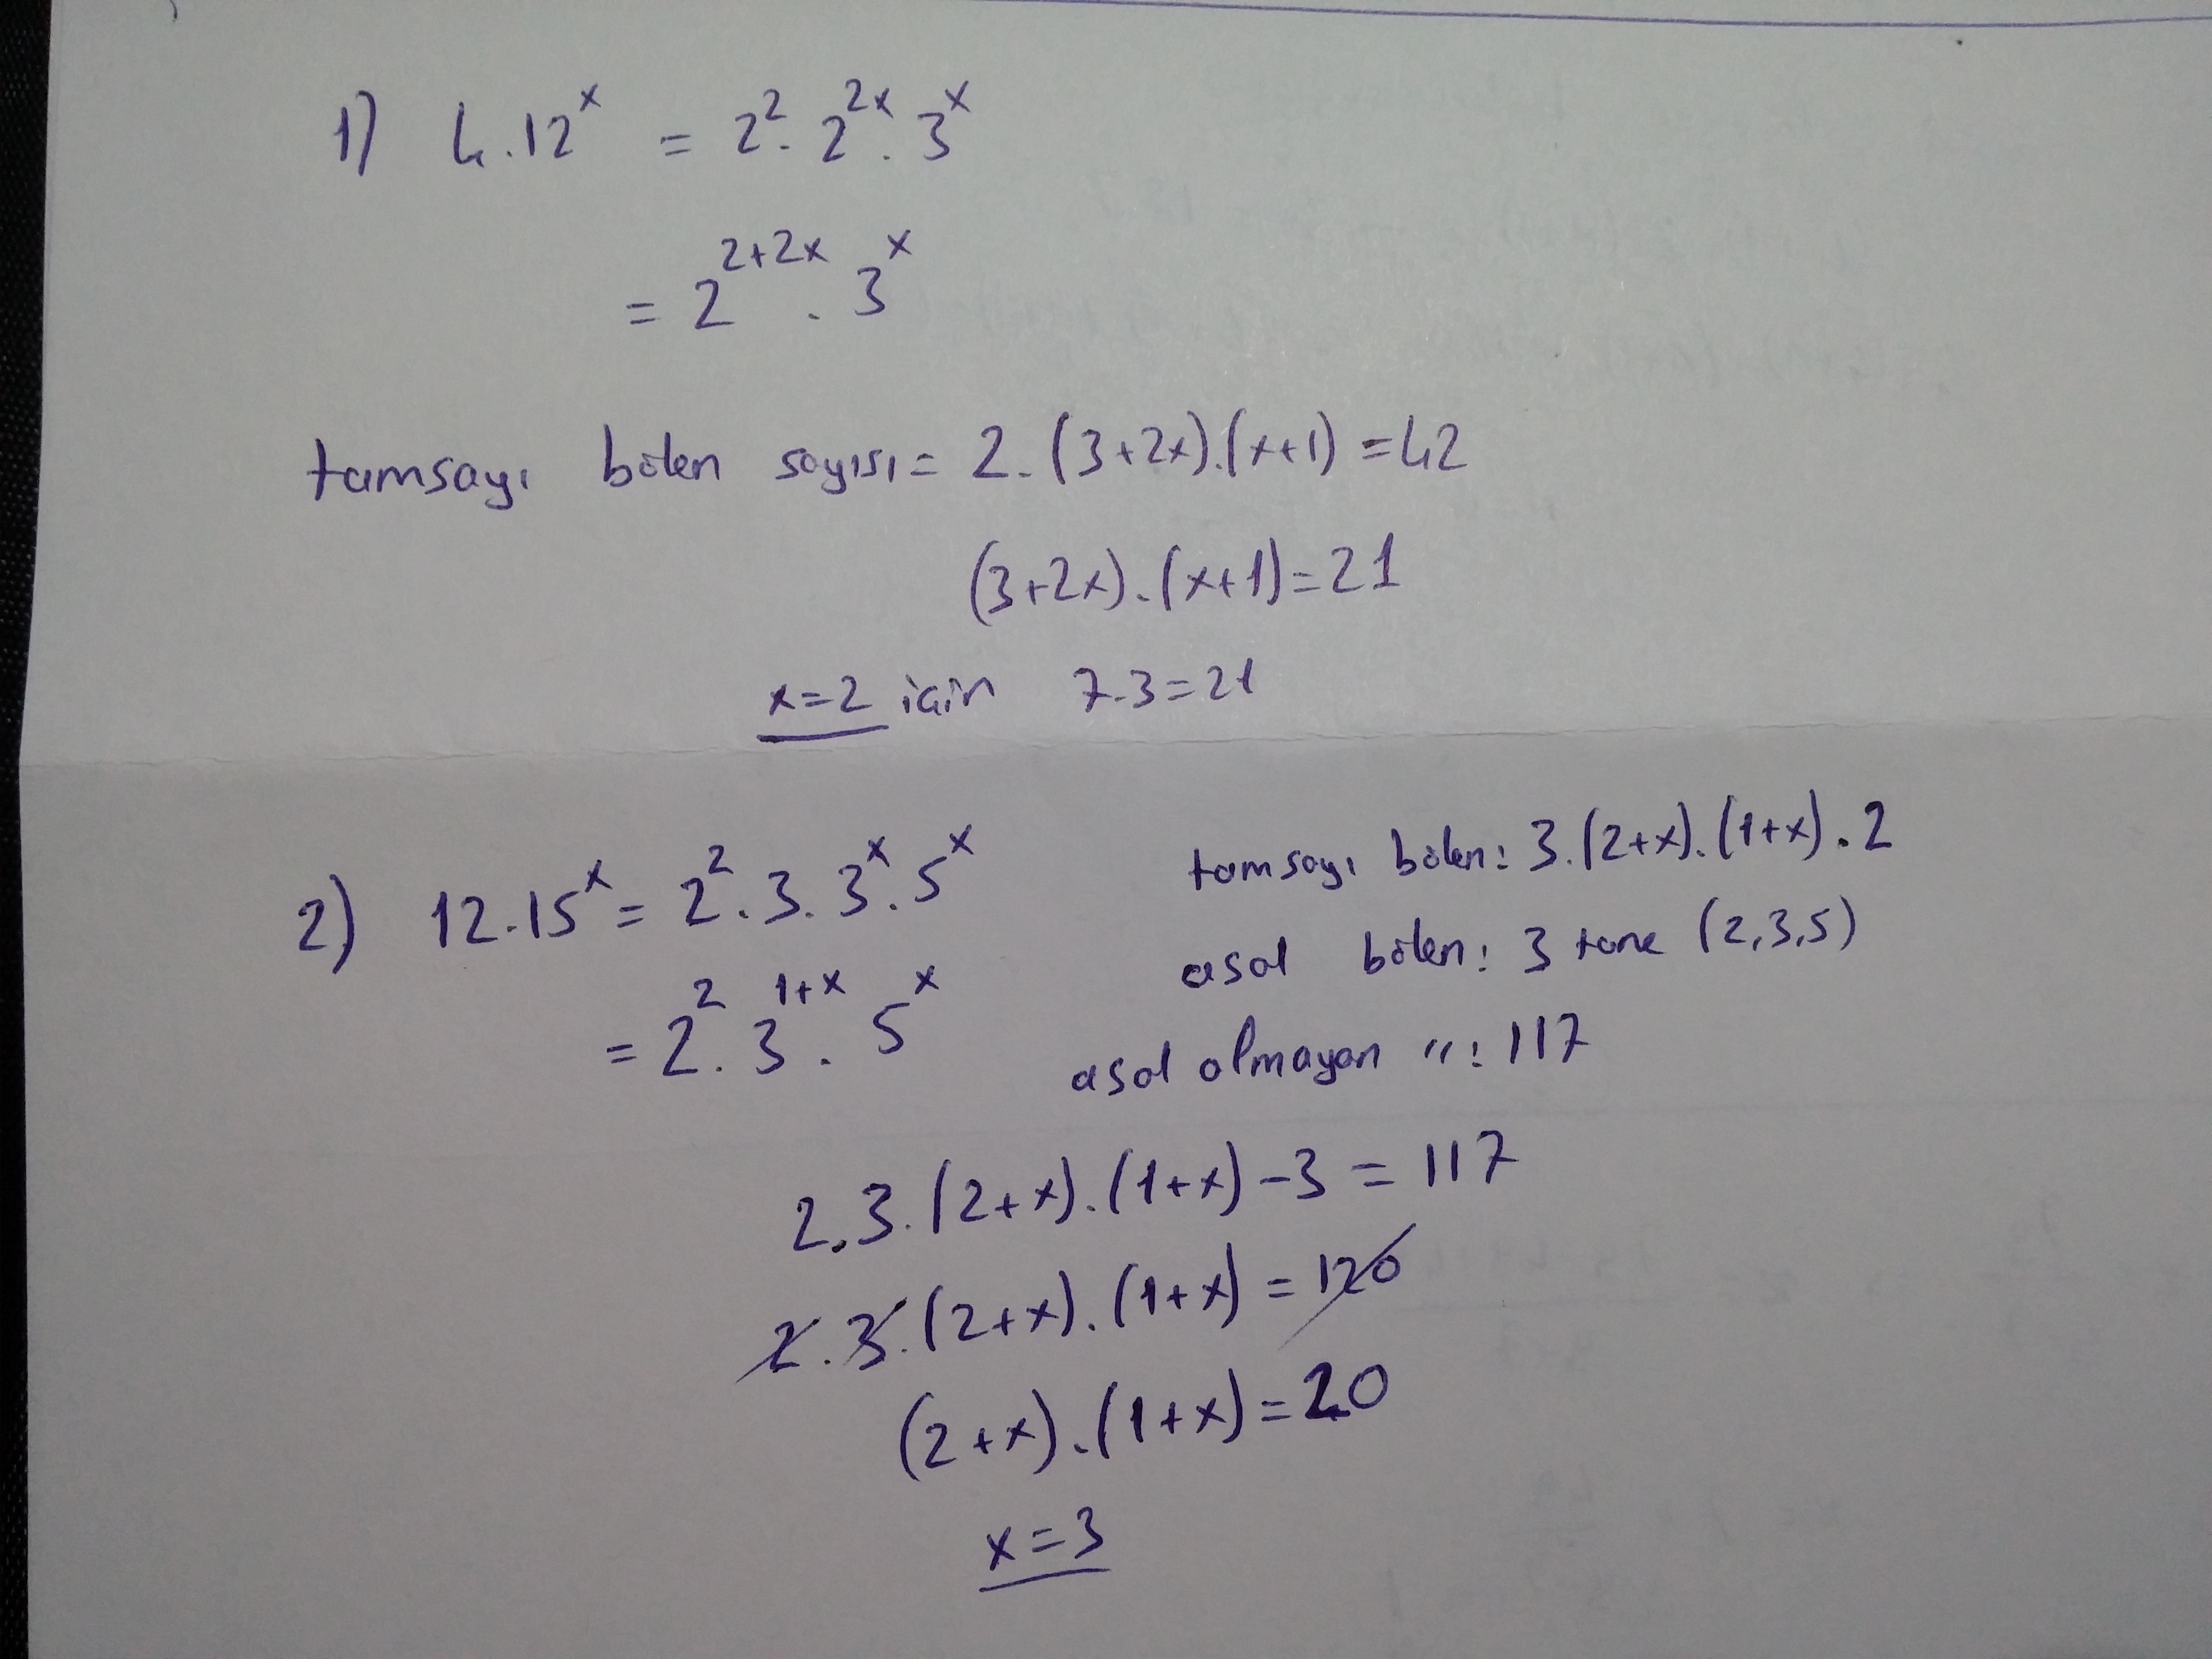 1) 4.12^x = 2^2 . 2^2x . 3^x
= 2^2+2x . 3^x
tamsayı bölen sayısı = 2.(3+2x).(x+1) = 42
(3+2x).(x+1)=21
x=2 için 7.3=21
2) 12.15^x = 2^2 . 3 . 3^x . 5^x
= 2^2 . 3^1+x . 5^x
tamsayı bölen: 3.(2+x).(1+x).2
asal bölen: 3 tane (2,3,5)
asal olmayan ": 117
2.3.(2+x).(1+x)-3 = 117
2.3.(2+x).(1+x) = 120
(2+x).(1+x)=20
x=3